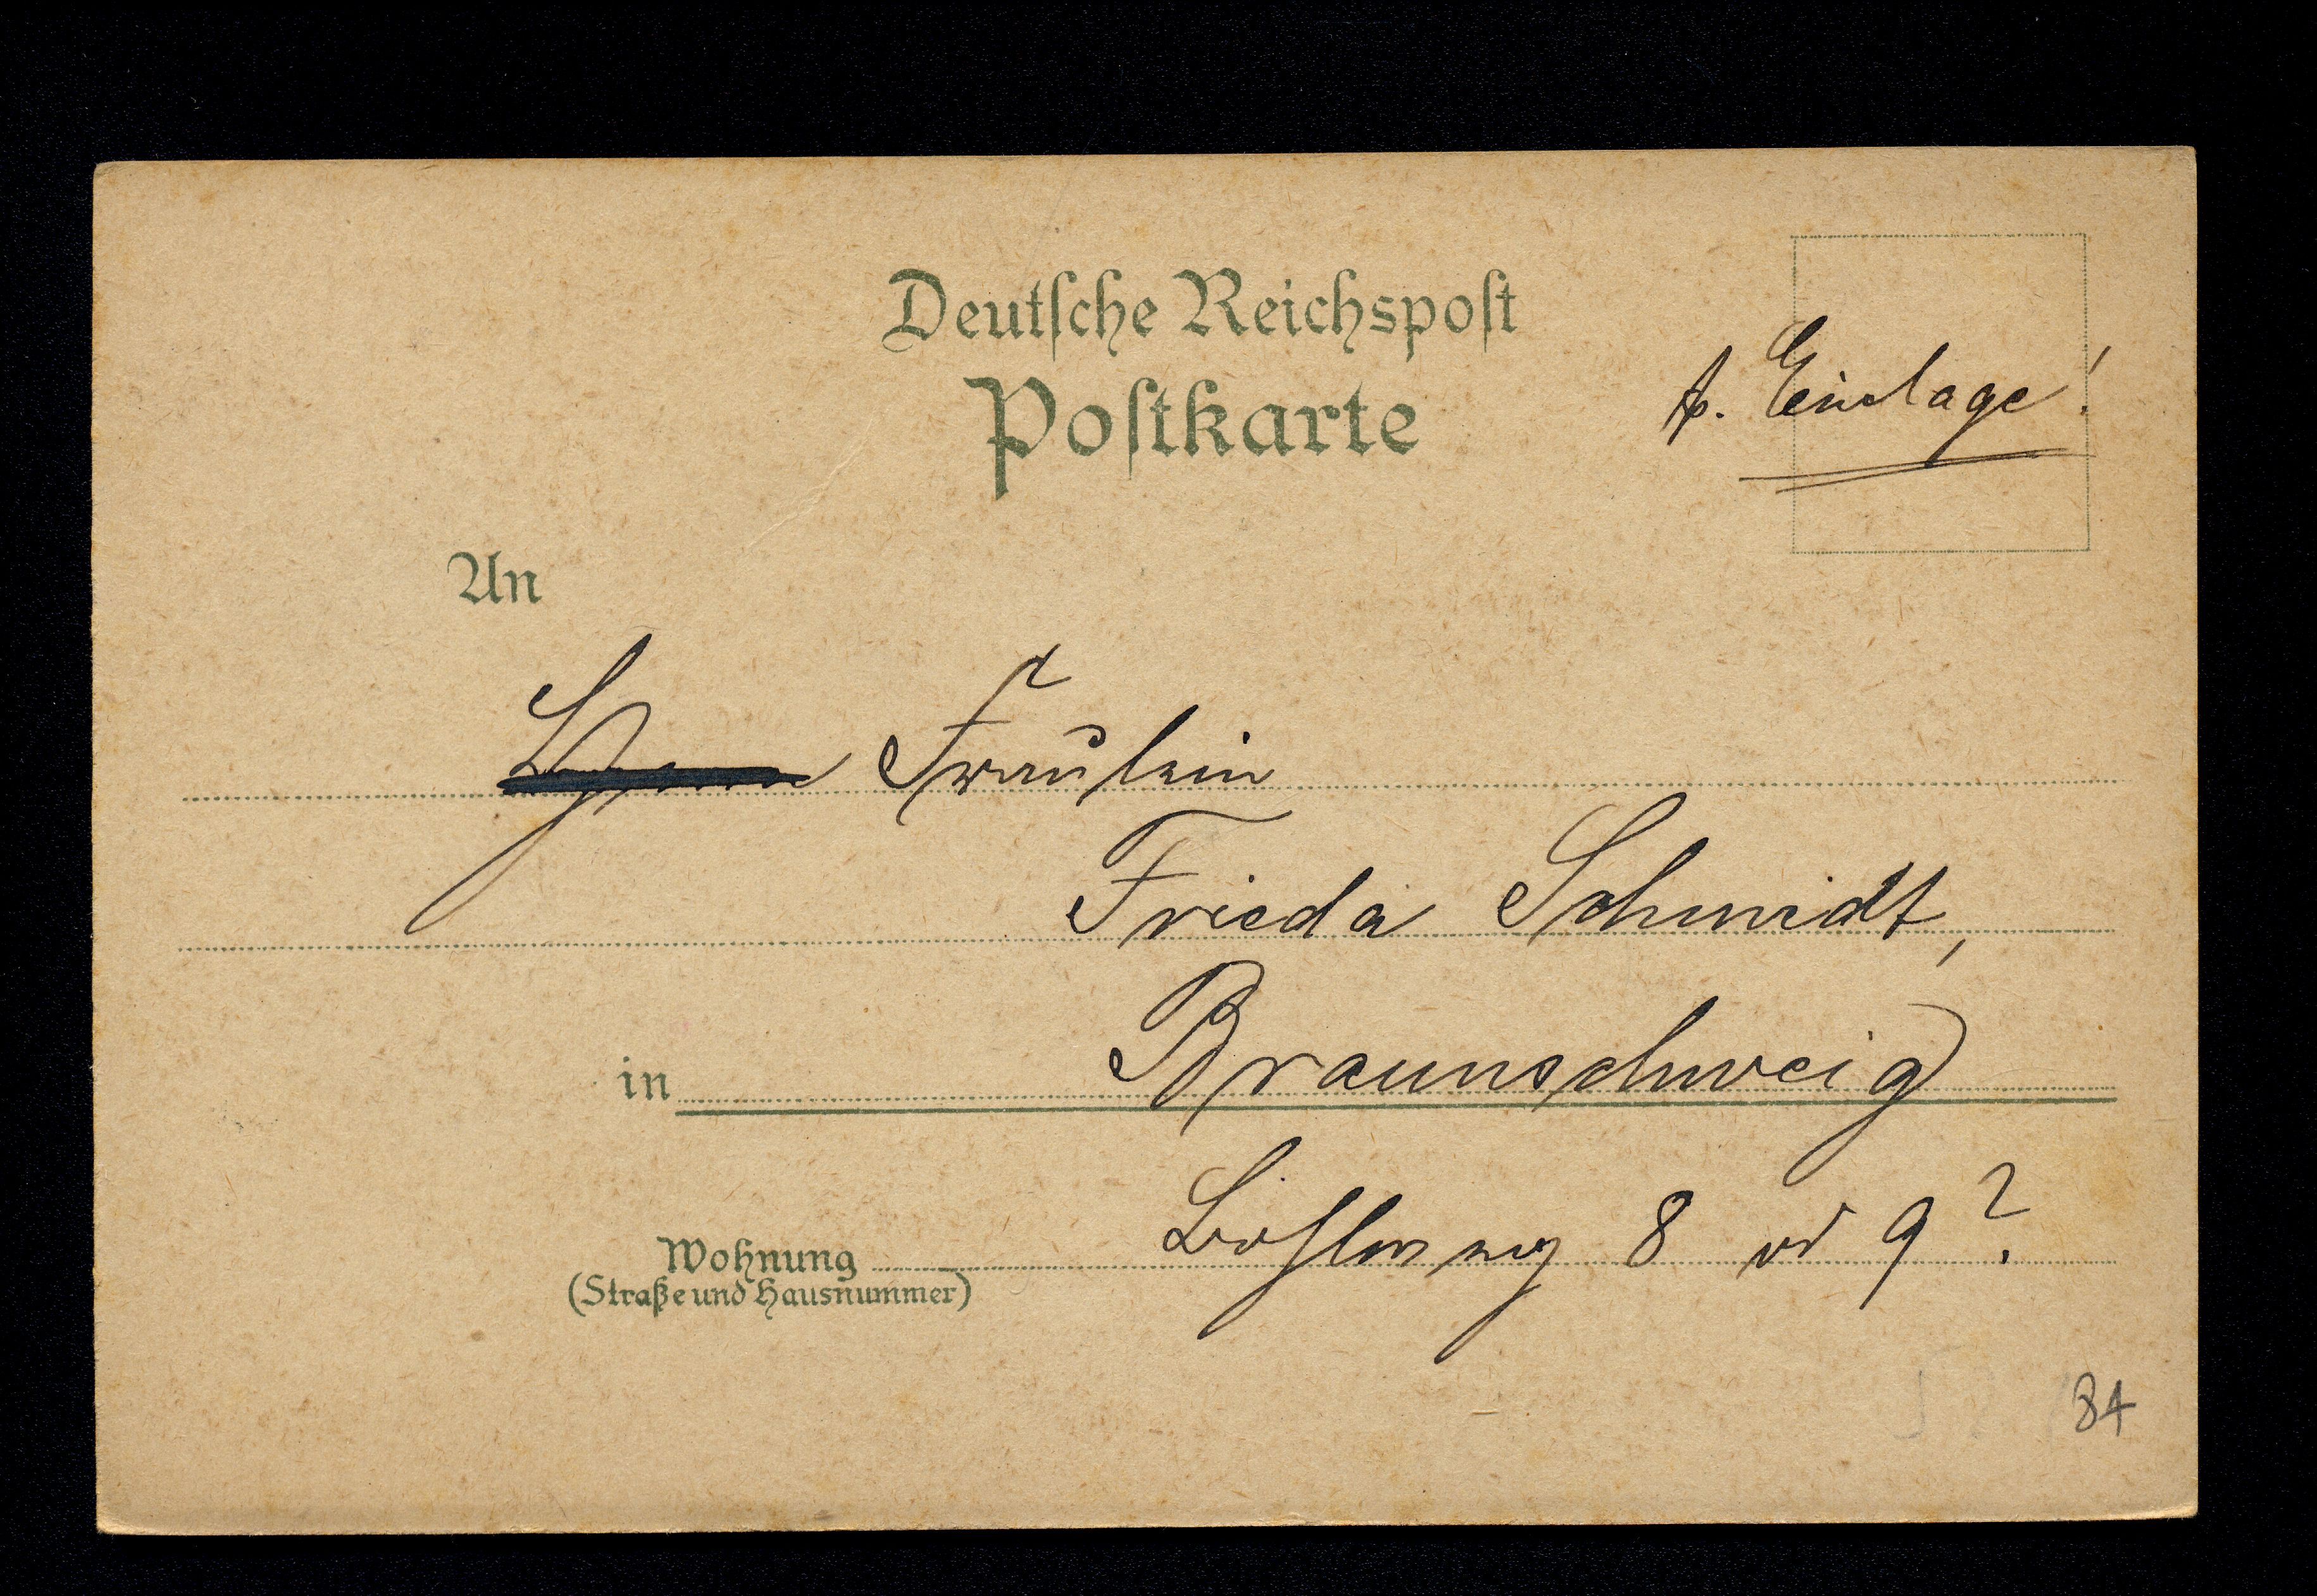 Deutſche Reichspoſt
Poſtkarte
p. Einlage!
An
Fräulein
Frieda Schmidt,
in Braunschweig
Wohnung Bohlweg 8 od 9?
(Straße und Hausnummer)
84